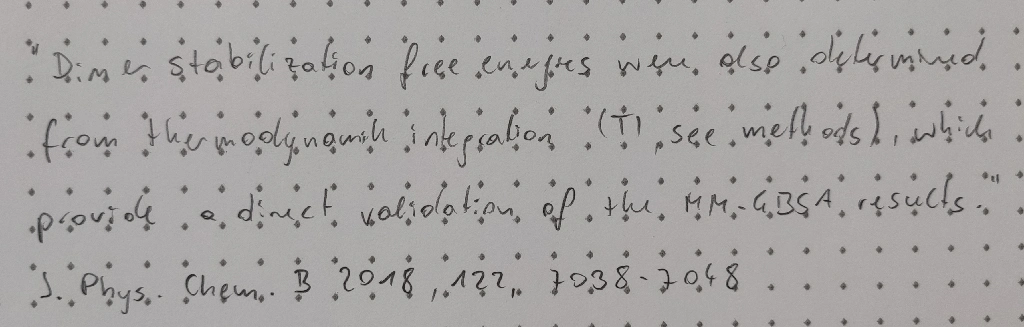 "Dimer stabilization free energies were also determined
from thermodynamic integration (TI, see methods), which
provide a direct validation of the MM-GBSA results."
J. Phys. Chem. B 2018, 122, 7038-7048